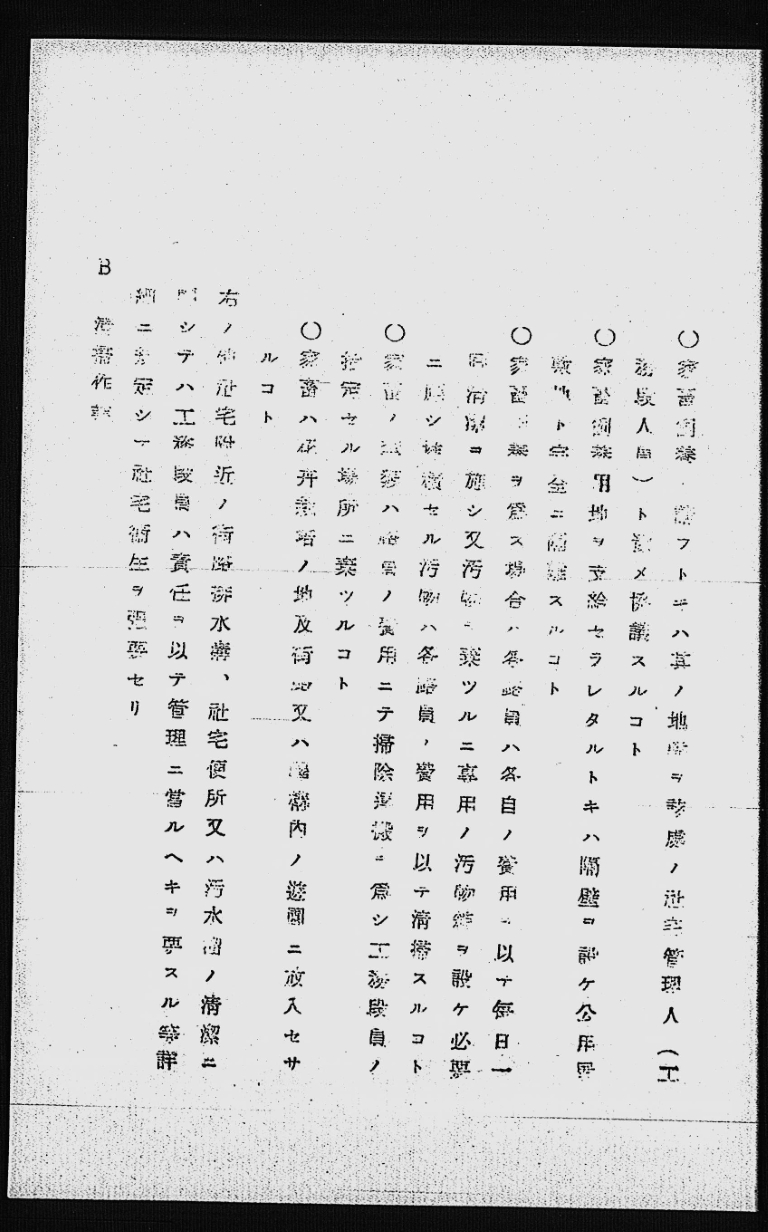 〇家畜飼養ノ請フトキハ其ノ地所ヲ該處ノ社宅管理人（工
務段人員）ト豫メ協議スルコト
〇家畜飼養用地ヲ支給セラレタルトキハ隔壁ヲ設ケ公用
敷地ト完全ニ隔離スルコト
〇家畜ノ養ヲ爲ス場合ハ各路員ハ各自ノ費用ヲ以テ毎日一
回清潔ヲ施シ又汚物ヲ棄ツルニ専用ノ汚物溜ヲ設ケ必要
ニ應シ堆積セル汚物ハ各路員ノ費用ヲ以テ清掃スルコト
〇家畜ノハ路員ノ費用ニテ掃除運搬ヲ爲シ工務段員ノ
指定セル場所ニ棄ツルコト
〇家畜ハ花卉栽培ノ地及街路又ハ溝内ノ遊園ニ放入セサ
ルコト
右ノ他社宅附近ノ街路排水溝、社宅便所又ハ汚水溜ノ清潔ニ
關シテハ工務段員ハ責任ヲ以テ管理ニ當ルヘキヲ要スル等詳
細ニ規定シテ社宅衛生ヲ強要セリ
B 消毒作業